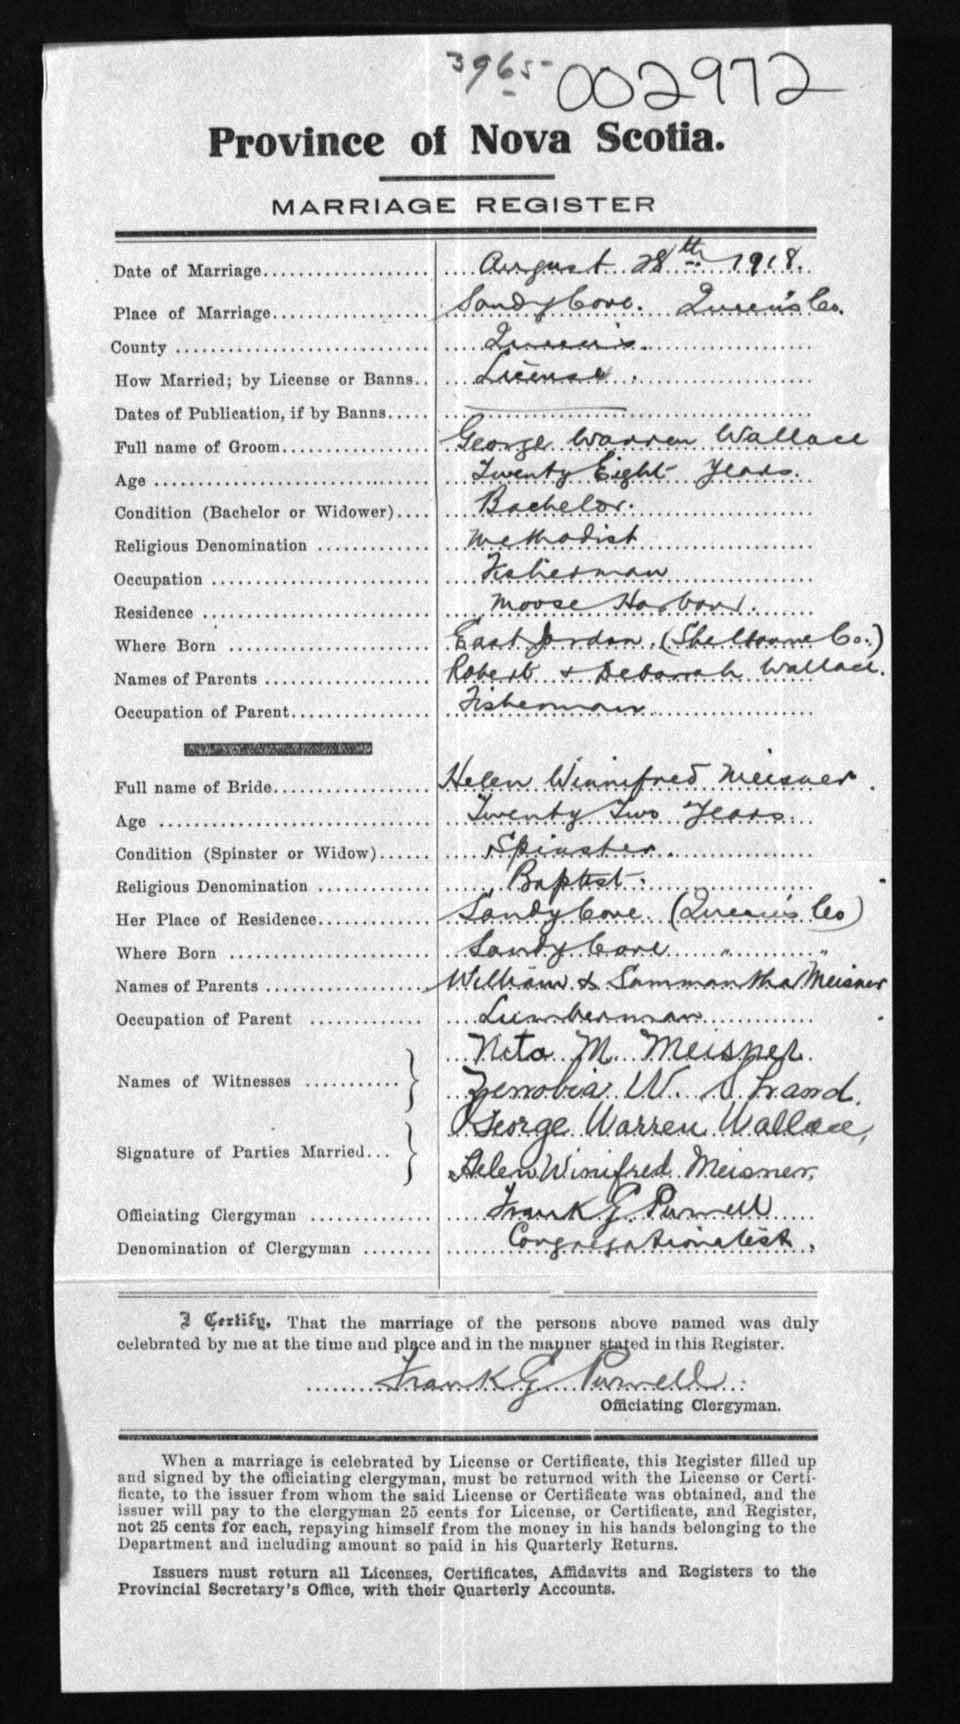 3965-
002972
Province of Nova Scotia.
MARRIAGE REGISTER
Date of Marriage.................... August 28th 1918.
Place of Marriage.................. Sandy Cove. Queen's Co.
County ............................. Queen's.
How Married; by License or Banns.. License.
Dates of Publication, if by Banns..... ———
Full name of Groom.................. George Warren Wallace
Age ................................ Twenty Eight Years.
Condition (Bachelor or Widower).... Bachelor.
Religious Denomination ............. Methodist
Occupation ......................... Fisherman
Residence .......................... Moose Harbour.
Where Born ........................ East Jordan (Shelburne Co.)
Names of Parents ................... Robert & Deborah Wallace.
Occupation of Parent................ Fisherman
Full name of Bride................... Helen Winnifred Meisner.
Age ................................ Twenty Two Years.
Condition (Spinster or Widow)...... Spinster.
Religious Denomination ............. Baptist.
Her Place of Residence.............. Sandy Cove (Queen's Co)
Where Born ........................ Sandy Cove " "
Names of Parents ................... William & Sammantha Meisner
Occupation of Parent ............. Lumberman
Neta M. Meisner.
Names of Witnesses ........... } Zenobia W. Strand.
George Warren Wallace,
Signature of Parties Married... }
Helen Winifred Meisner,
Officiating Clergyman .............. Frank G. Purnell
Denomination of Clergyman ........ Congregationalist,
I Certify, That the marriage of the persons above named was duly
celebrated by me at the time and place and in the manner stated in this Register.
Frank G Purnell
Officiating Clergyman.
When a marriage is celebrated by License or Certificate, this Register filled up
and signed by the officiating clergyman, must be returned with the License or Certi-
ficate, to the issuer from whom the said License or Certificate was obtained, and the
issuer will pay to the clergyman 25 cents for License, or Certificate, and Register,
not 25 cents for each, repaying himself from the money in his hands belonging to the
Department and including amount so paid in his Quarterly Returns.
Issuers must return all Licenses, Certificates, Affidavits and Registers to the
Provincial Secretary's Office, with their Quarterly Accounts.